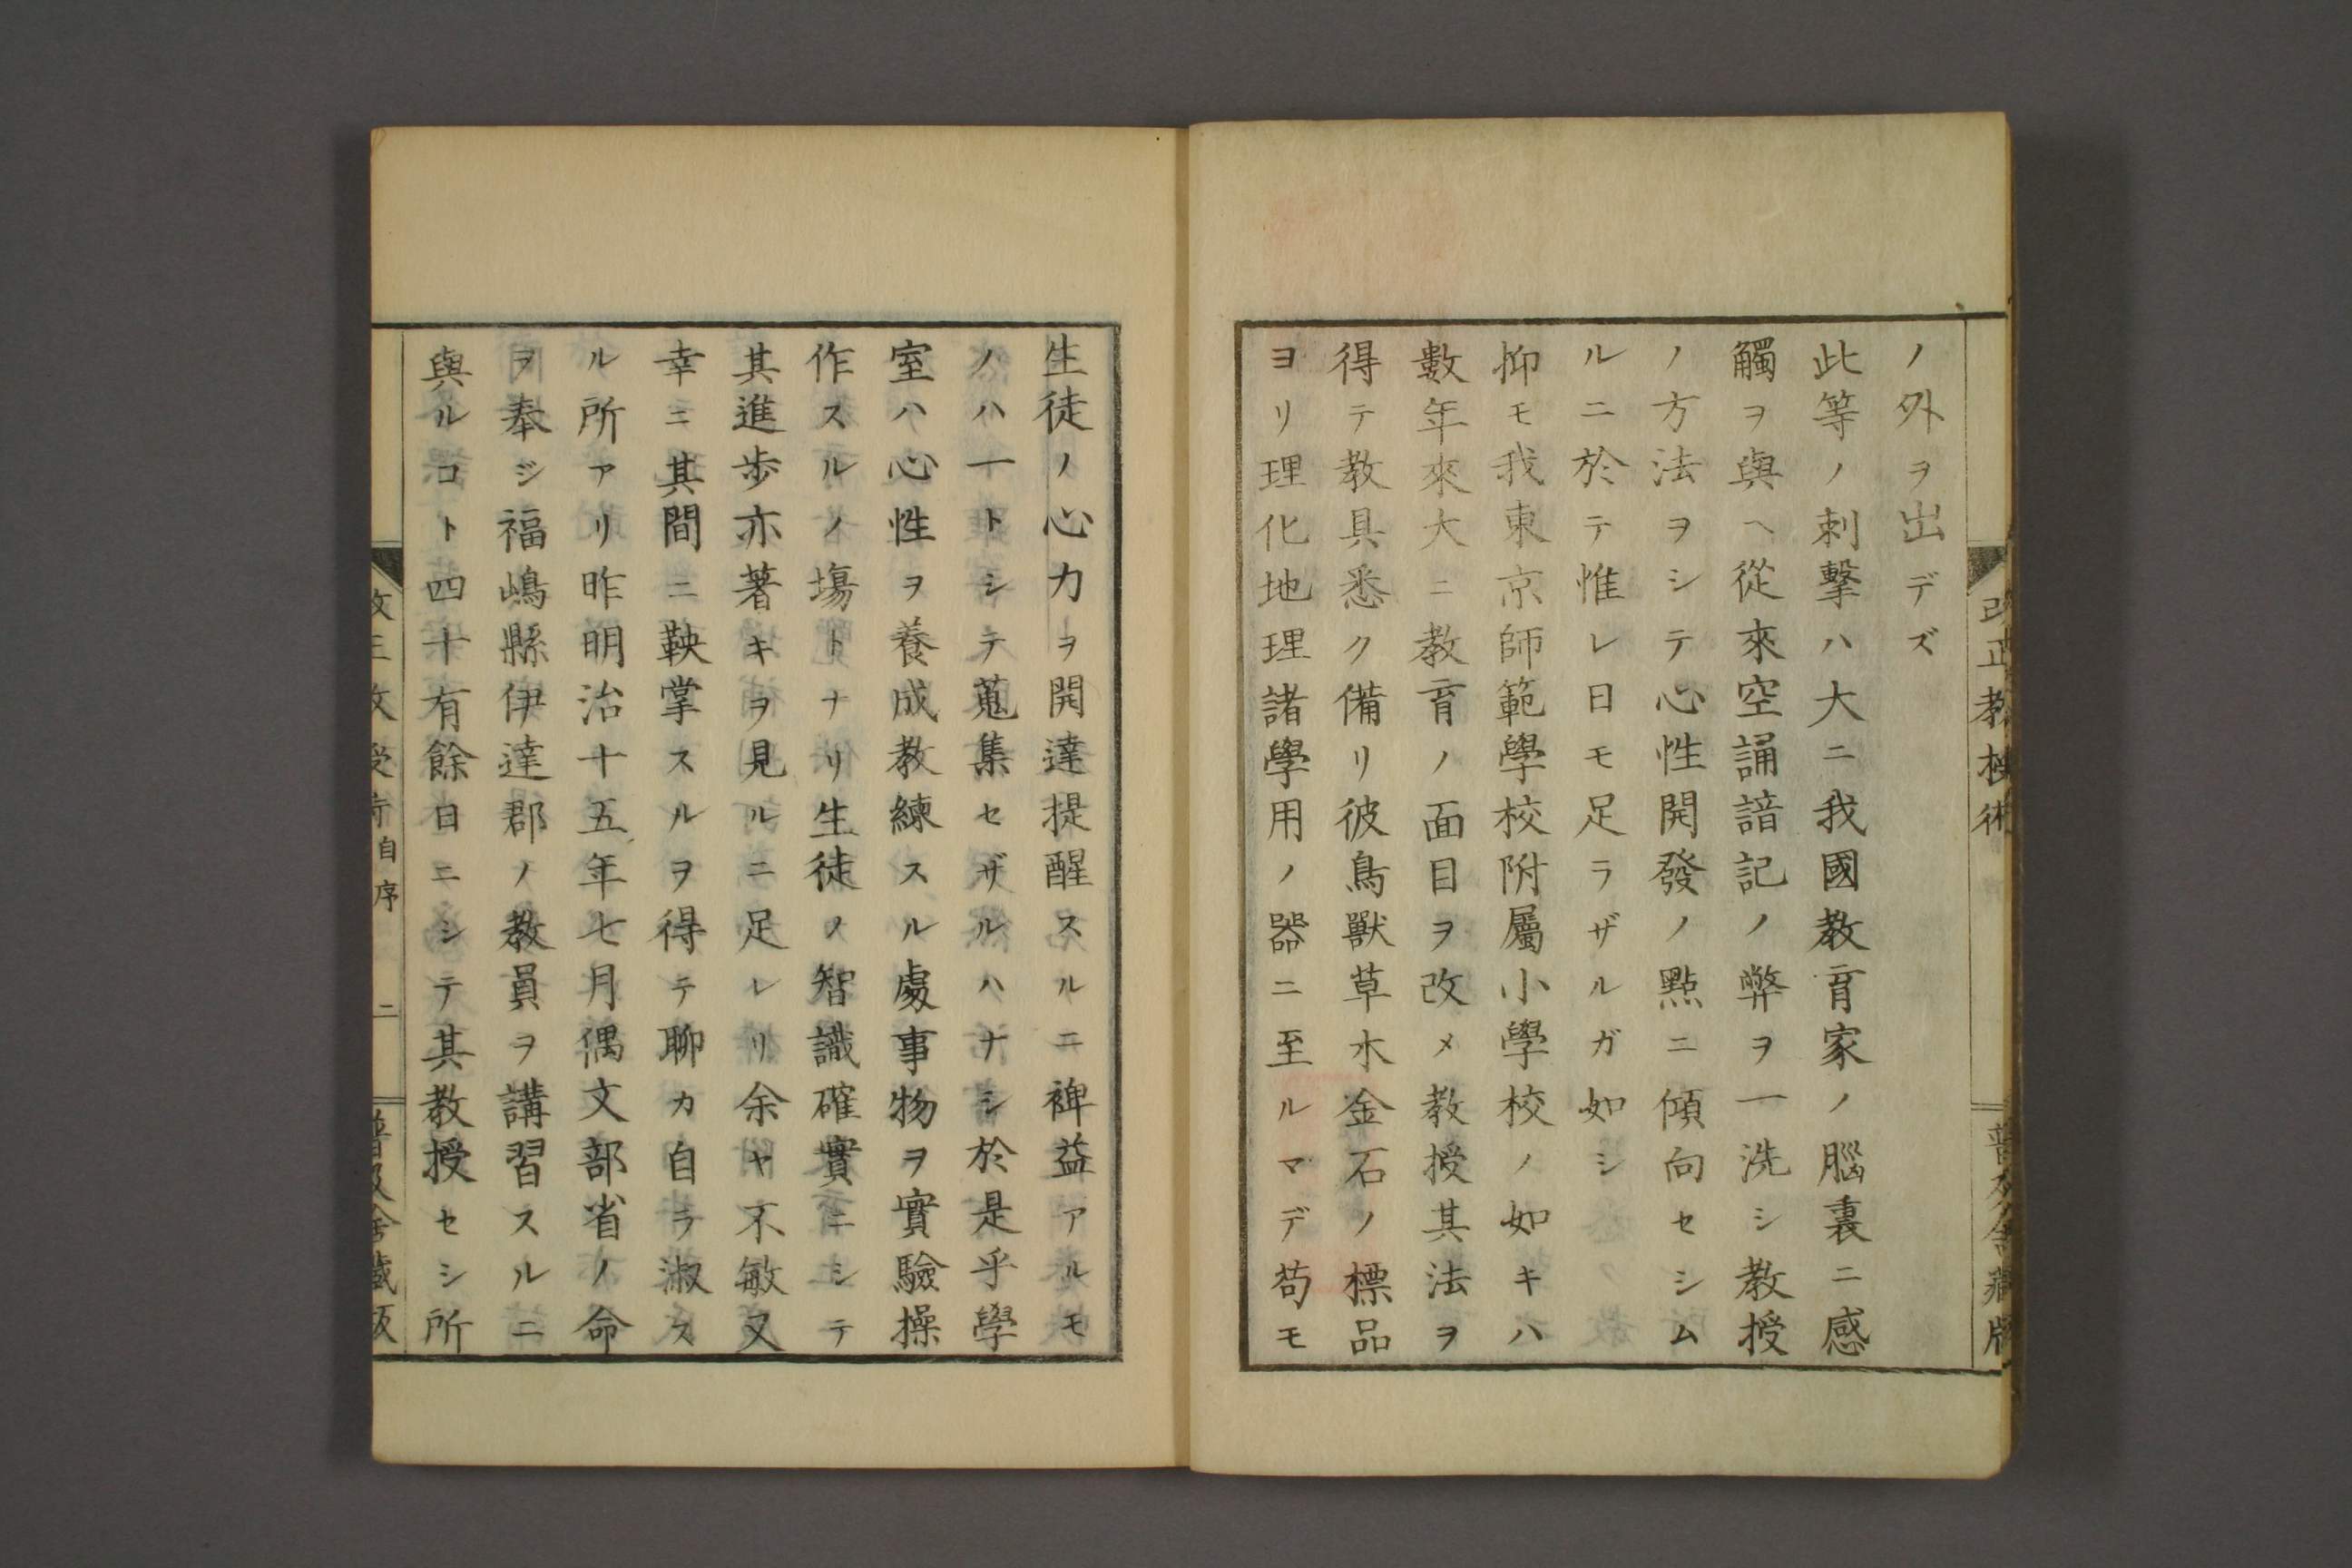 改正教授術
普及舎藏版
ノ外ヲ出デズ
此等ノ刺撃ハ大ニ我國教育家ノ腦裏ニ感
觸ヲ與ヘ從來空誦諳記ノ弊ヲ一洗シ教授
ノ方法ヲシテ心性開發ノ點ニ傾向セシム
ルニ於テ惟レ日モ足ラザルガ如シ
抑モ我東京師範學校附屬小學校ノ如キハ
數年來大ニ教育ノ面目ヲ改メ教授其法ヲ
得テ教具悉ク備リ彼鳥獸草木金石ノ標品
ヨリ理化地理諸學用ノ器ニ至ルマデ苟モ
生徒ノ心力ヲ開達提醒スルニ裨益アルモ
ノハ一トシテ蒐集セザルハナシ於是乎學
室ハ心性ヲ養成教練スル處事物ヲ實驗操
作スルノ塲トナリ生徒ノ智識確實ニシテ
其進歩亦著キヲ見ルニ足レリ余ヤ不敏又
幸ニ其間ニ鞅掌スルヲ得テ聊カ自ラ淑ス
ル所アリ昨明治十五年七月偶文部省ノ命
ヲ奉ジ福嶋縣伊達郡ノ教員ヲ講習スルニ
與ルコト四十有餘日ニシテ其教授セシ所
自序
二
普及舍藏版